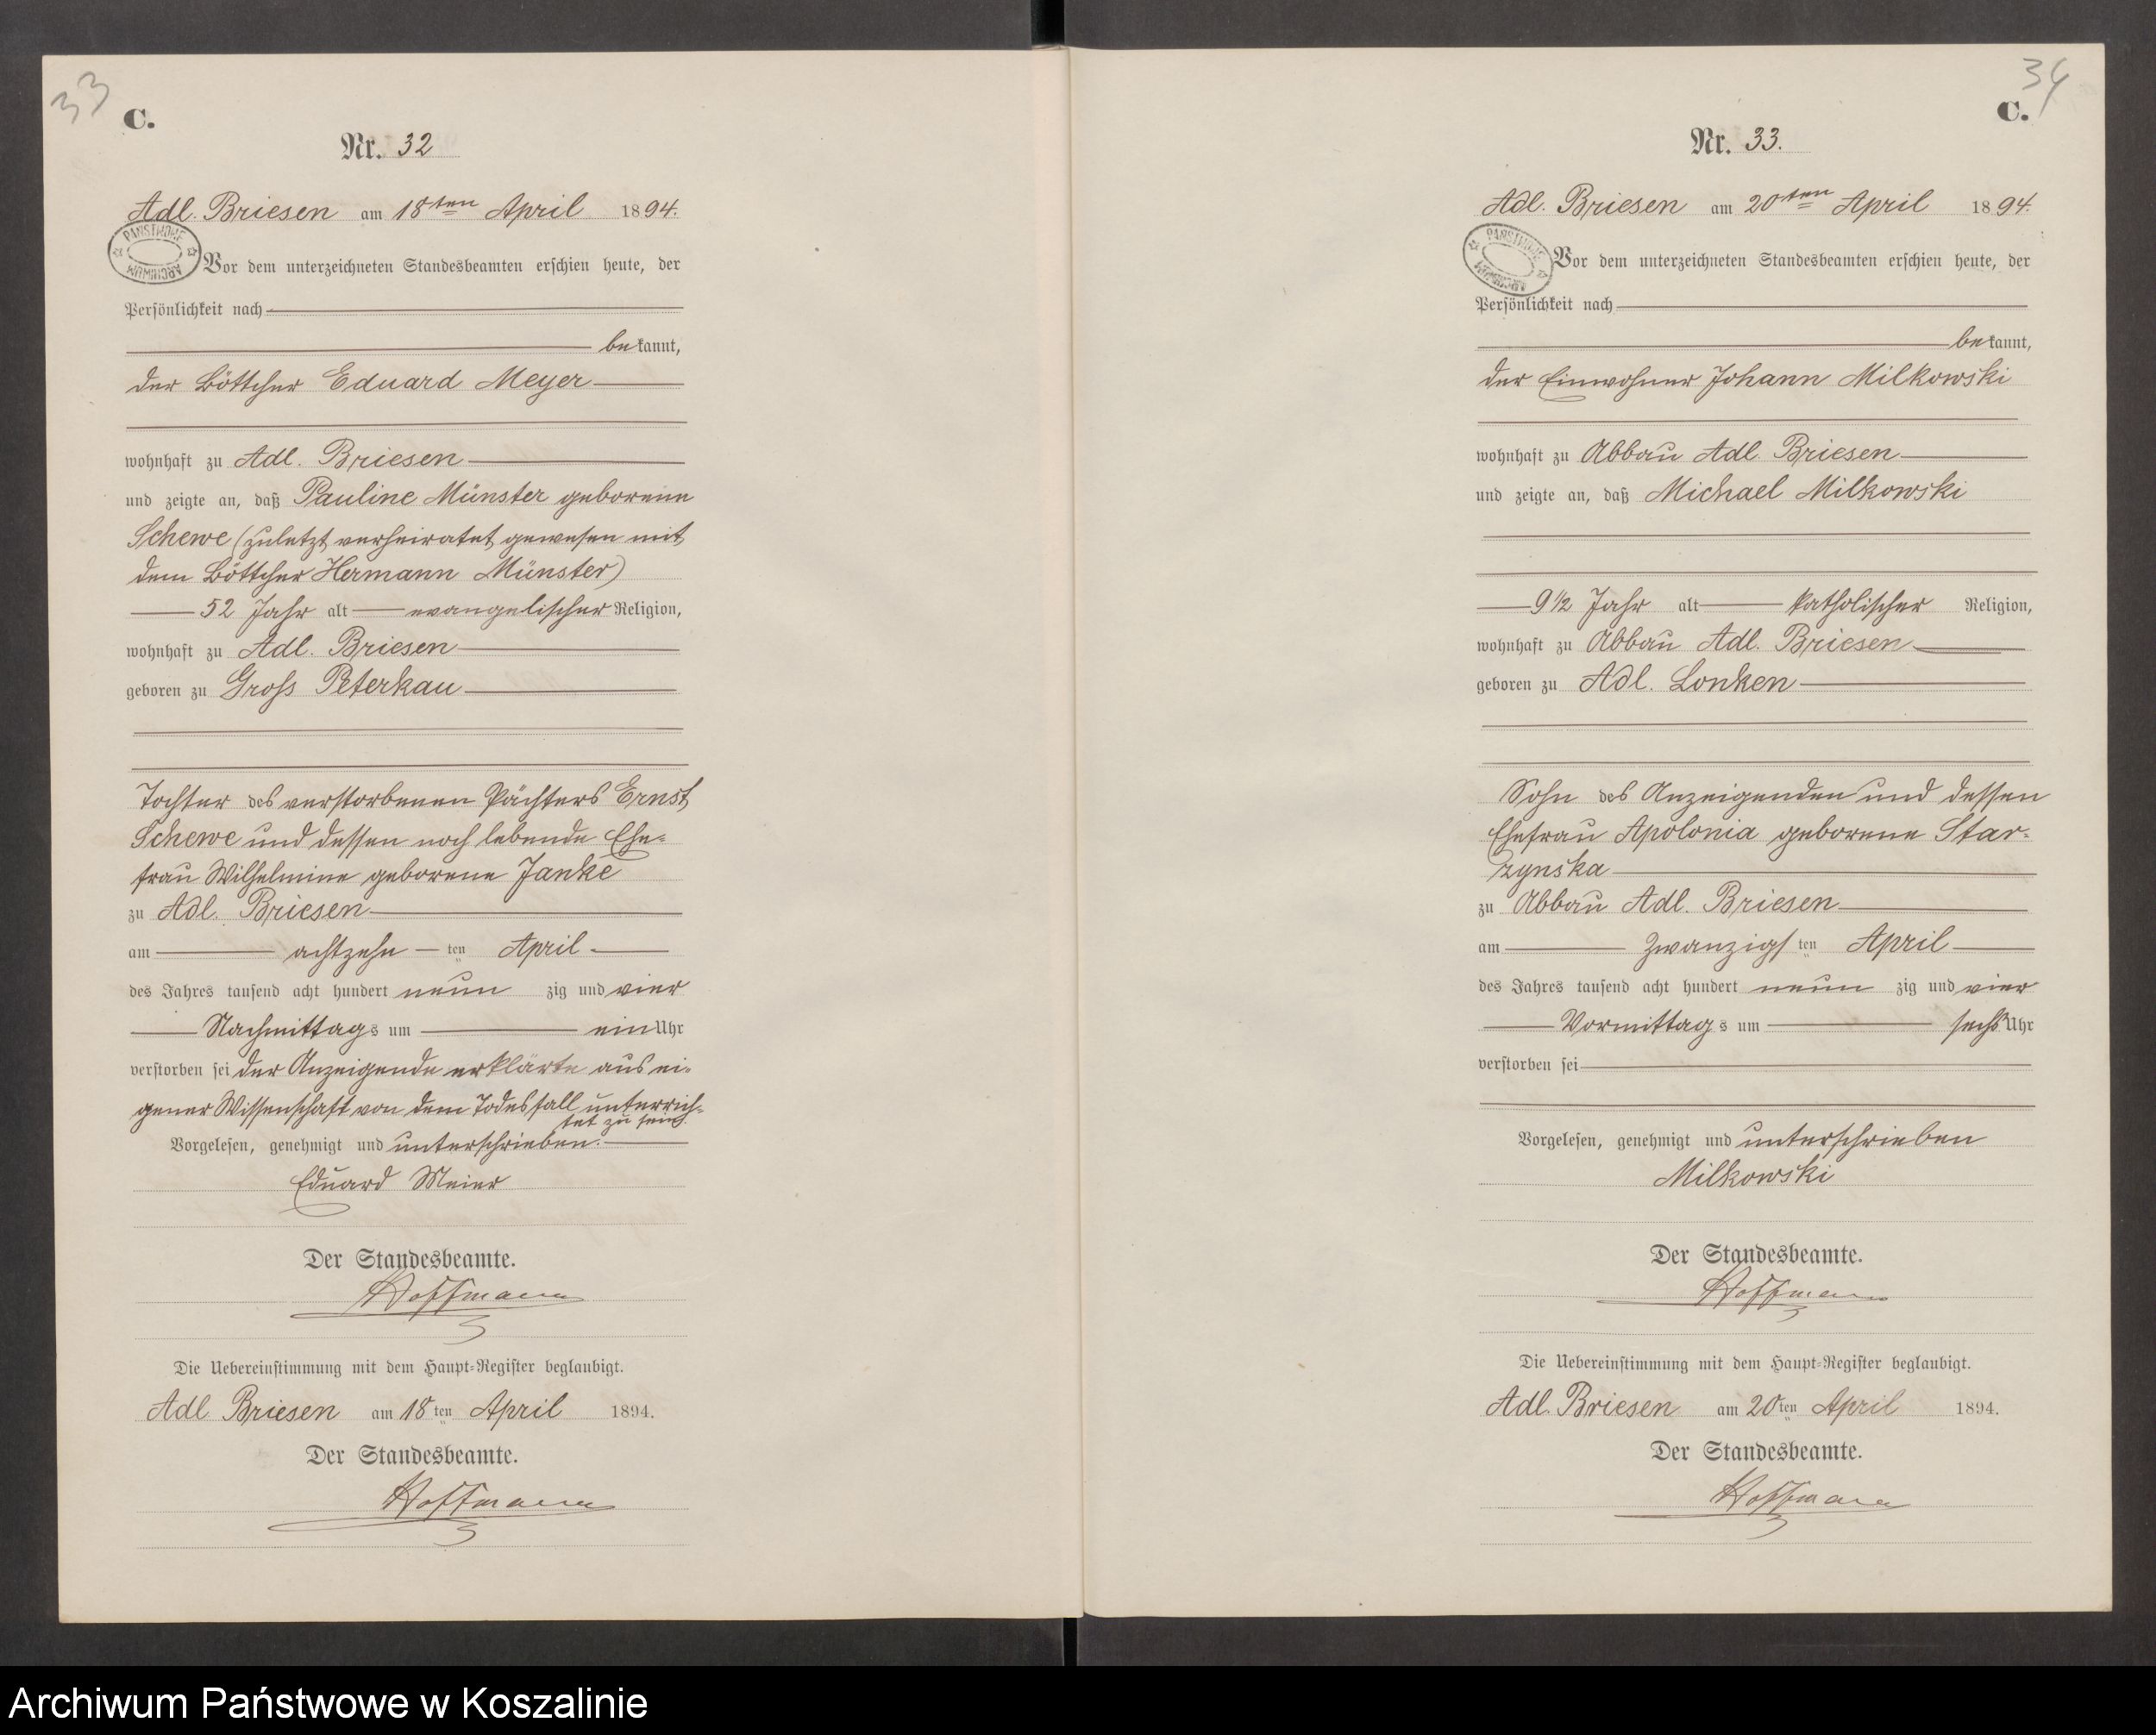 33
C.
Nr. 32
Adl. Briesen am 18ten April 1894.
PAŃSTWOWE ARCHIWUM
Vor dem unterzeichneten Standesbeamten erschien heute, der
Persönlichkeit nach
bekannt,
der Böttcher Eduard Meyer
wohnhaft zu Adl. Briesen
und zeigte an, daß Pauline Münster geborene
Schewe (zuletzt verheiratet gewesen mit
dem Böttcher Hermann Münster)
52 Jahr alt evangelischer Religion,
wohnhaft zu Adl. Briesen
geboren zu Gross Peterkau
Tochter des verstorbenen Pächters Ernst
Schewe und dessen noch lebende Ehe-
frau Wilhelmine geborene Janke
zu Adl. Briesen
am achtzehn ten April
des Jahres tausend acht hundert neun zig und vier
Nachmittags um ein Uhr
verstorben sei der Anzeigende erklärte aus ei-
gener Wissenschaft von dem Todesfall unterrich-
tet zu sein.
Vorgelesen, genehmigt und unterschrieben.
Eduard Meier
Der Standesbeamte.
Hoffmann
Die Uebereinstimmung mit dem Haupt-Register beglaubigt.
Adl Briesen am 18 ten April 1894.
Der Standesbeamte.
Hoffmann
34
C.
Nr. 33.
Adl. Briesen am 20ten April 1894.
PAŃSTWOWE ARCHIWUM
Vor dem unterzeichneten Standesbeamten erschien heute, der
Persönlichkeit nach
bekannt,
der Einwohner Johann Milkowski
wohnhaft zu Abbau Adl. Briesen
und zeigte an, daß Michael Milkowski
9 1/2 Jahr alt katholischer Religion,
wohnhaft zu Abbau Adl. Briesen
geboren zu Adl. Lonken
Sohn des Anzeigenden und dessen
Ehefrau Apolonia geborene Star-
zynska
zu Abbau Adl. Briesen
am zwanzigs ten April
des Jahres tausend acht hundert neun zig und vier
Vormittags um sechs Uhr
verstorben sei
Vorgelesen, genehmigt und unterschrieben
Milkowski
Der Standesbeamte.
Hoffmann
Die Uebereinstimmung mit dem Haupt-Register beglaubigt.
Adl. Briesen am 20 ten April 1894.
Der Standesbeamte.
Hoffmann
Archiwum Państwowe w Koszalinie